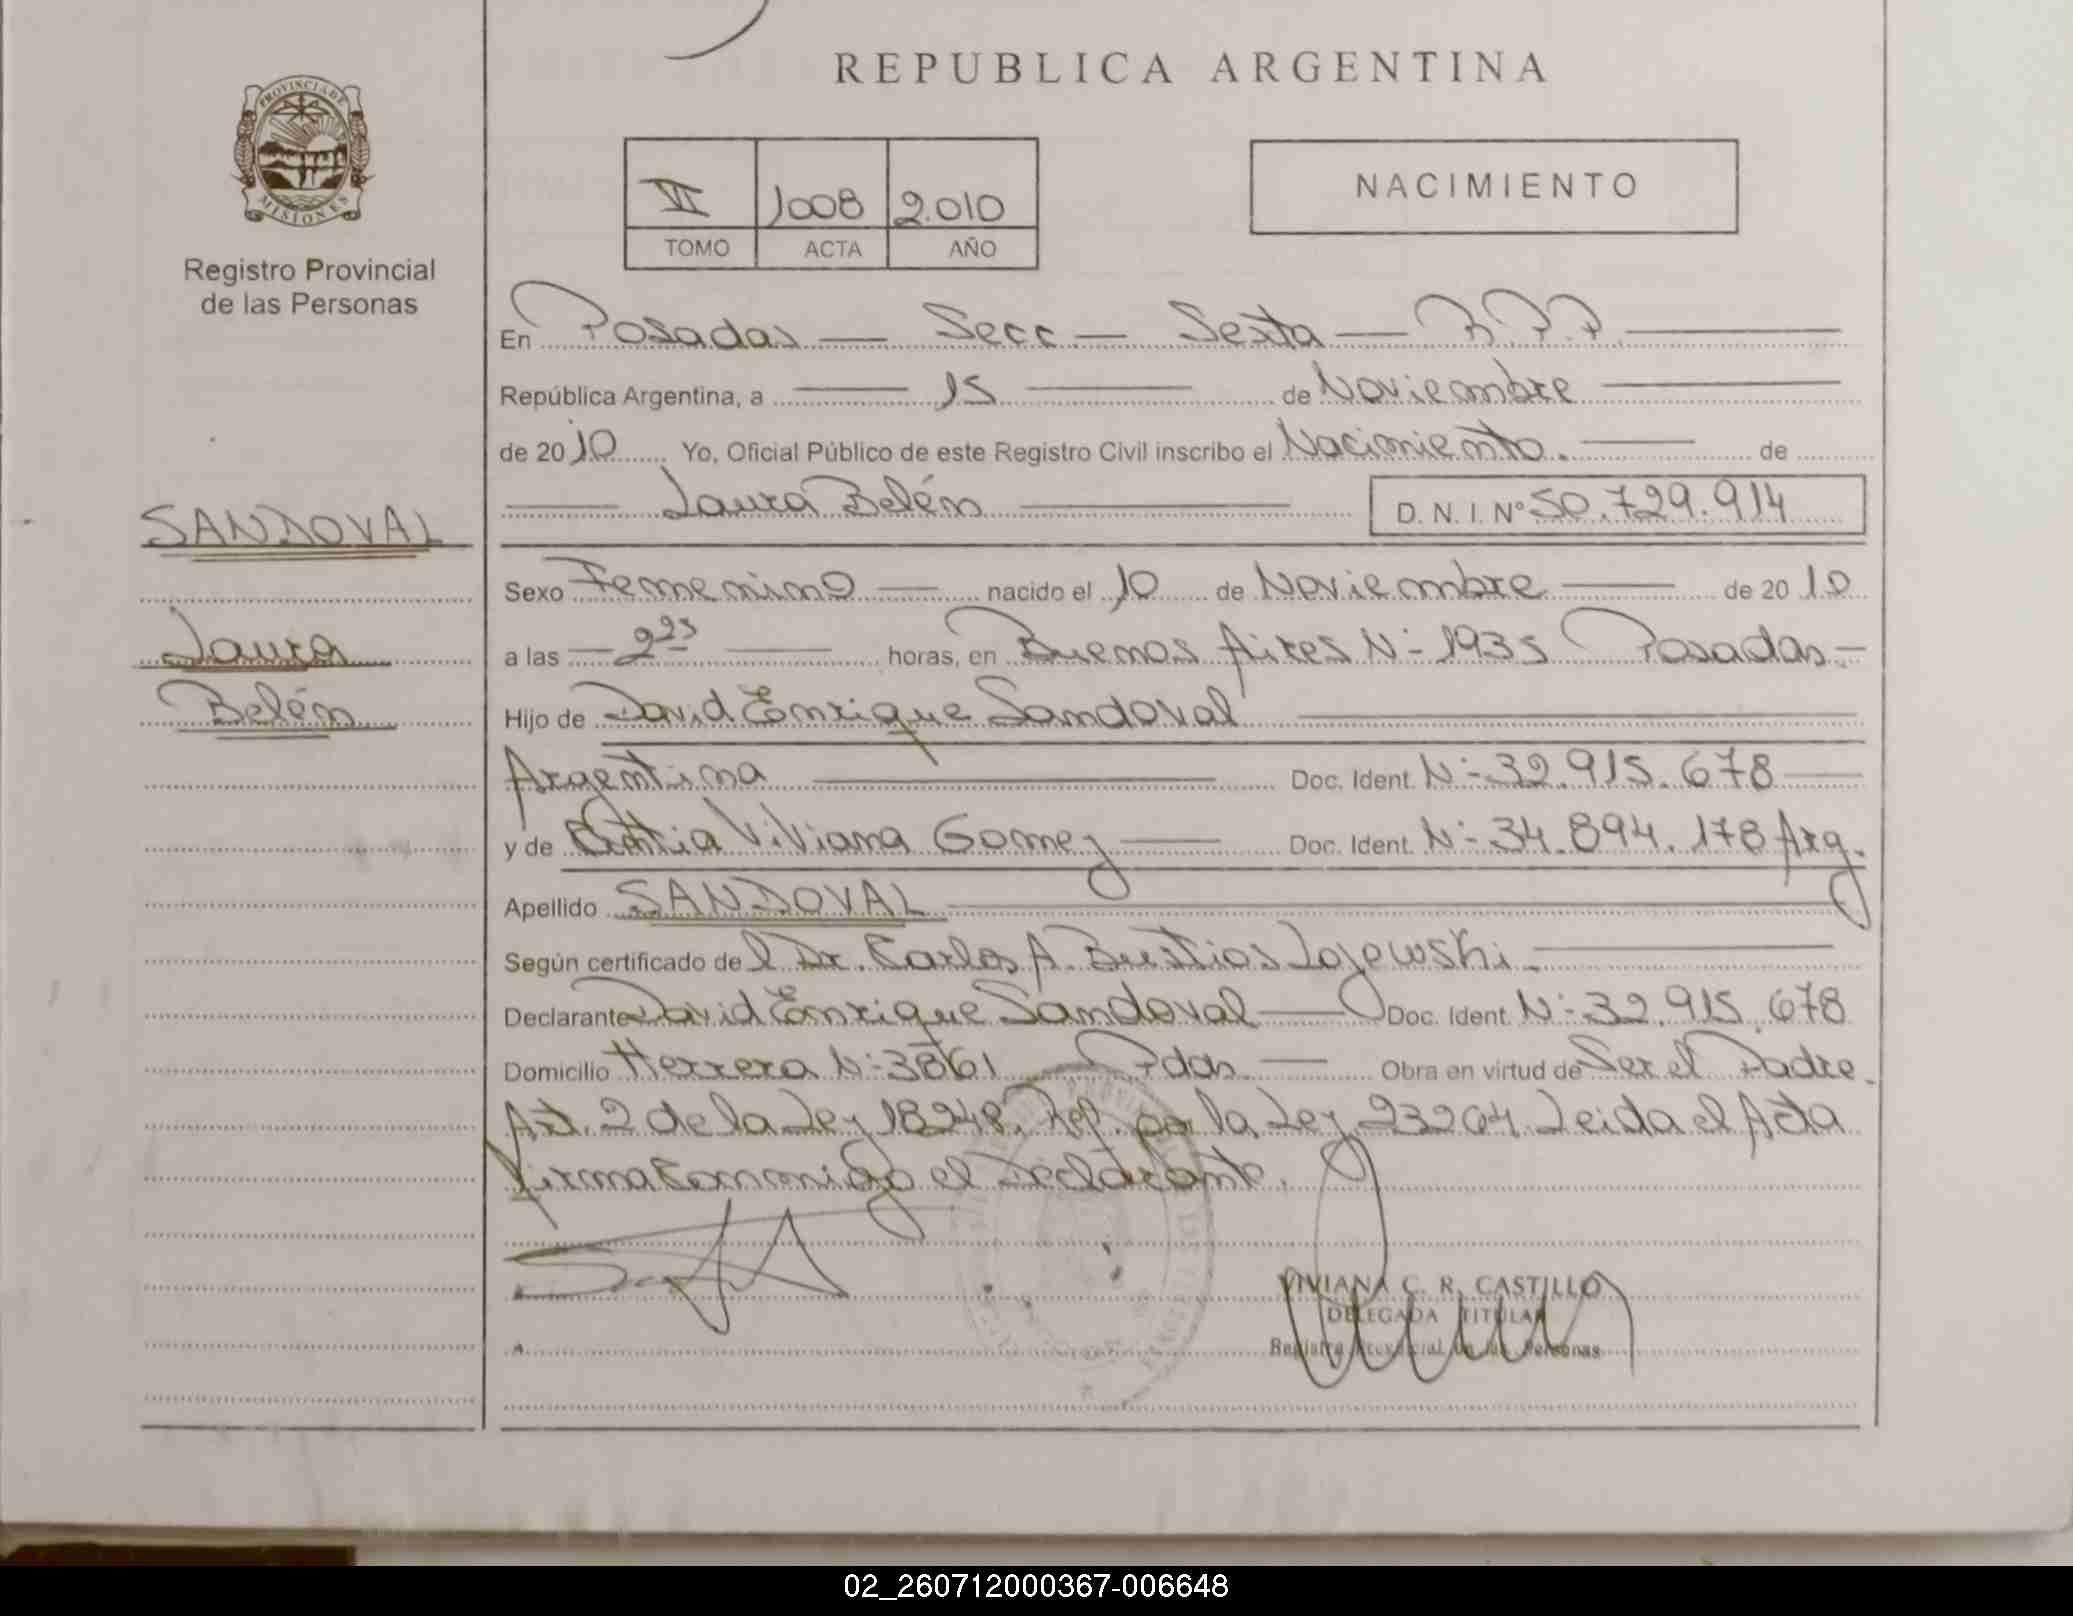 REPUBLICA ARGENTINA
PROVINCIA DE MISIONES
Registro Provincial
de las Personas
VI 1008 2.010
TOMO ACTA AÑO
NACIMIENTO
En Posadas — Secc — Sexta — R.P.P.
República Argentina, a 15 de Noviembre
de 2010 Yo, Oficial Público de este Registro Civil inscribo el Nacimiento. de
Laura Belén D. N. I. Nº 50.729.914
SANDOVAL
Laura
Belén
Sexo Femenino nacido el 10 de Noviembre de 2010
a las 2 25 horas, en Buenos Aires N:- 1935 Posadas.-
Hijo de David Enrique Sandoval
Argentina Doc. Ident. N:- 32.915.678
y de Cintia Viviana Gomez Doc. Ident. N:- 34.894.178 Arg.
Apellido SANDOVAL
Según certificado del Dr. Carlos A. Bustios Lojewski.
Declarante David Enrique Sandoval Doc. Ident. N:- 32.915.678
Domicilio Herrera N:- 3861 Pdas. Obra en virtud de Ser el Padre.
Art. 2 de la Ley 18248, Ref. por la Ley 23264. Leida el Acta
firma conmigo el Declarante.
VIVIANA C. R. CASTILLO
DELEGADA TITULAR
Registro Provincial de las Personas
02_260712000367-006648